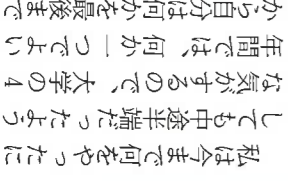 私は今まで何をやったに
しても中途半端だったよう
な気がするので、大学の4
年間では、何か一つでよい
から自分は何かを最後まで